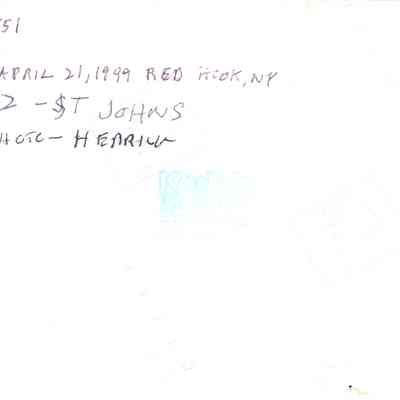 51
APRIL 21, 1999 RED HOOK, NY
2 - ST JOHNS
HOTO - HERRICK